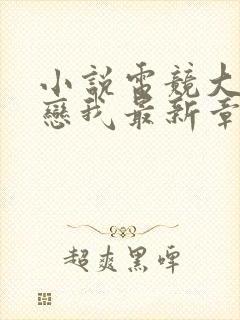 小說電競大
戀我最新章
超爽黑啤